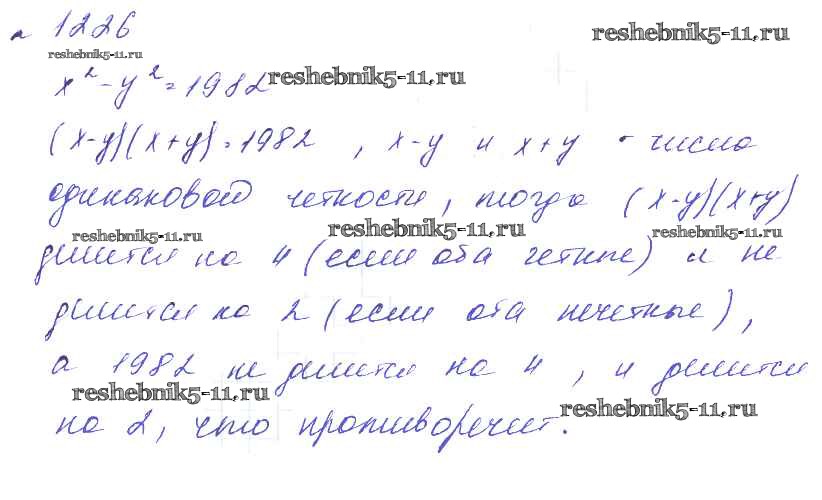 1226
reshebnik5-11.ru
reshebnik5-11.ru
x² - y² = 1982
reshebnik5-11.ru
(x-y)(x+y) = 1982 , x-y и x+y - числа
одинаковой четности, тогда (x-y)(x+y)
reshebnik5-11.ru
reshebnik5-11.ru
reshebnik5-11.ru
делится на 4 (если оба четные) и не
делится на 2 (если оба нечетные),
а 1982 не делится на 4, и делится
reshebnik5-11.ru
reshebnik5-11.ru
на 2, что противоречит.